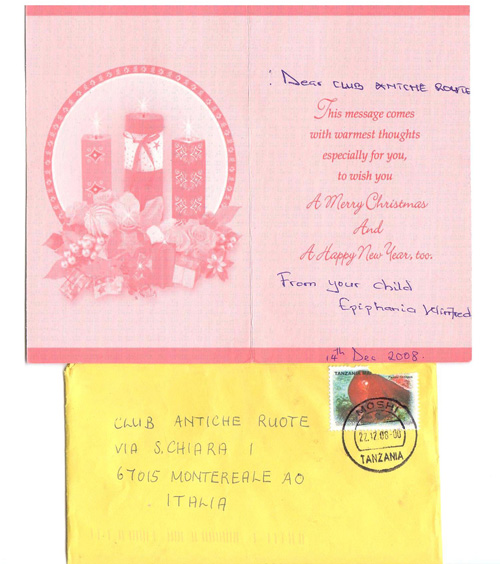 : Dear CLUB ANTICHE ROUTE
This message comes
with warmest thoughts
especially for you,
to wish you
A Merry Christmas
And
A Happy New Year, too.
From your child
Epiphania
14th Dec 2008.
TANZANIA
MOSHI
22.12.08-00
TANZANIA
CLUB ANTICHE RUOTE
VIA S.CHIARA 1
67015 MONTEREALE AQ
ITALIA